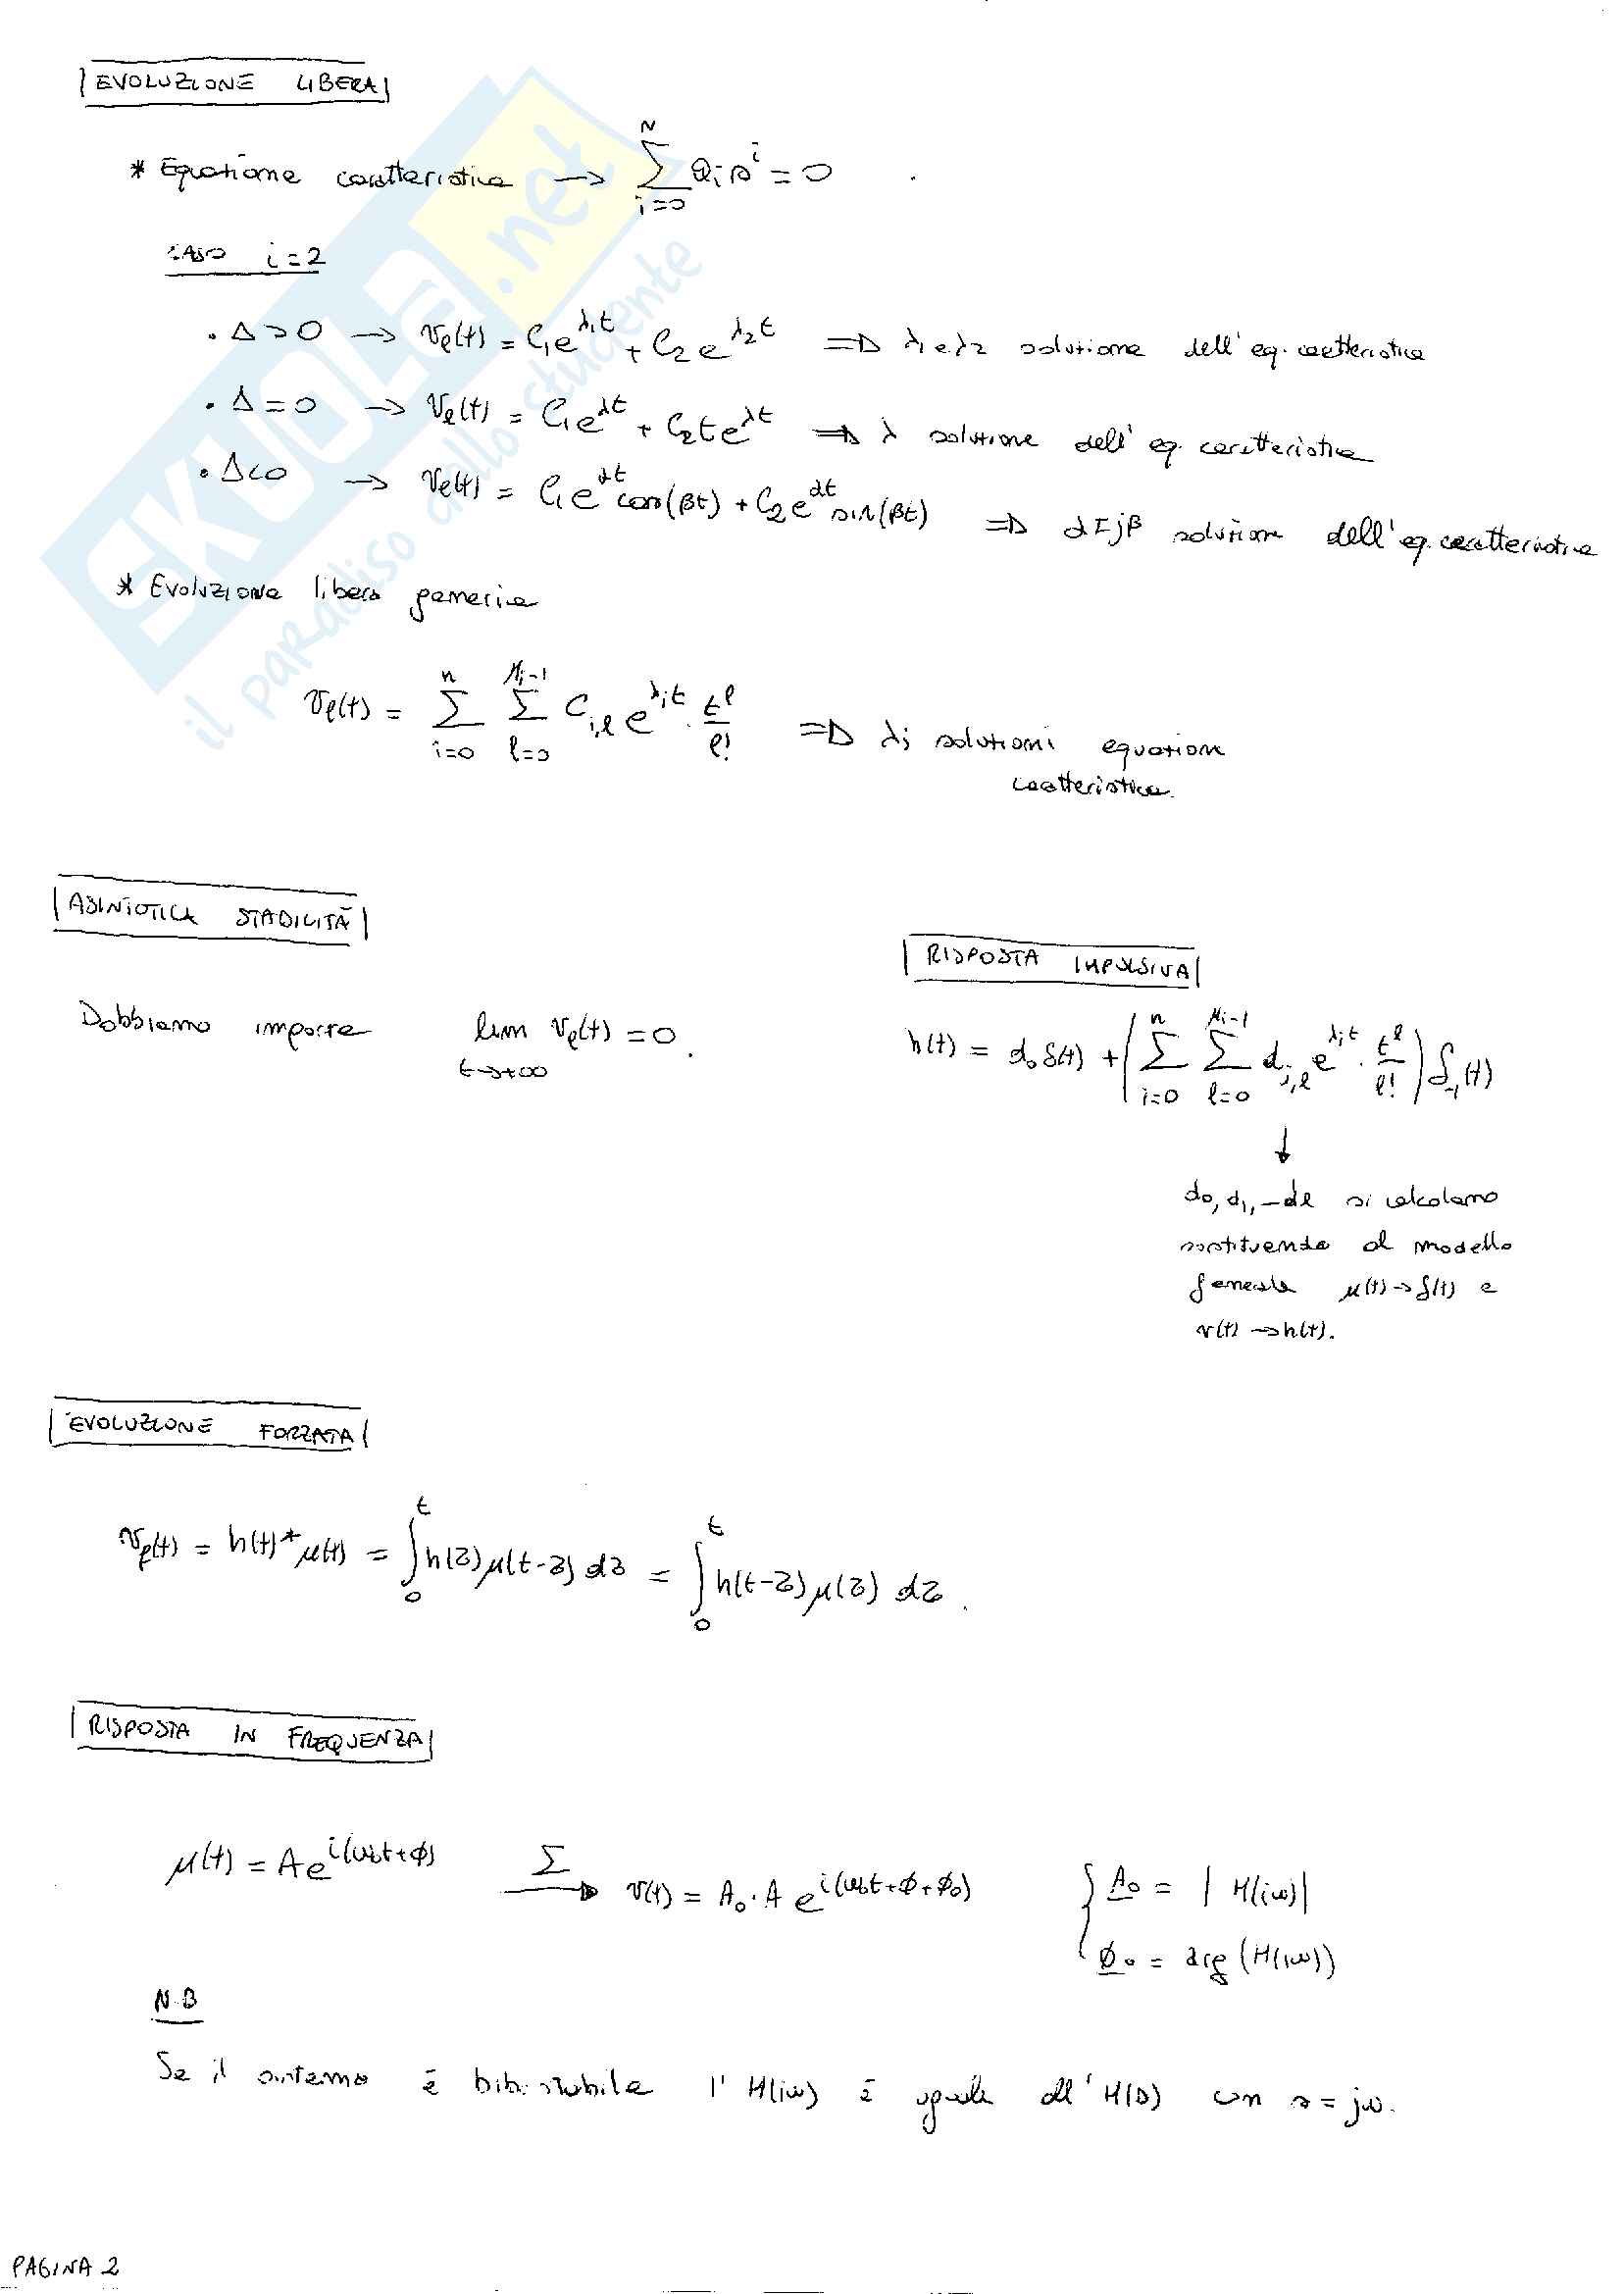 EVOLUZIONE LIBERA
* Equazione caratteristica → \sum_{i=0}^{N} a_i s^i = 0
CASO i=2
. Δ>0 → v_l(t) = C_1 e^{λ_1 t} + C_2 e^{λ_2 t} ⇒ λ_1 e λ_2 soluzione dell'eq. caratteristica
. Δ=0 → v_l(t) = C_1 e^{λt} + C_2 t e^{λt} ⇒ λ soluzione dell'eq. caratteristica
. Δ<0 → v_l(t) = C_1 e^{αt} cos(βt) + C_2 e^{αt} sin(βt) ⇒ α±jβ soluzione dell'eq. caratteristica
* Evoluzione libera generica
v_l(t) = \sum_{i=0}^{n} \sum_{l=0}^{μ_i-1} C_{i,l} e^{λ_i t} · \frac{t^l}{l!} ⇒ λ_i soluzioni equazione
caratteristica.
ASINTOTICA STABILITÀ
Dobbiamo imporre lim_{t→+∞} v_l(t) = 0.
RISPOSTA IMPULSIVA
h(t) = d_0 δ(t) + ( \sum_{i=0}^{n} \sum_{l=0}^{μ_i-1} d_{i,l} e^{λ_i t} · \frac{t^l}{l!} ) δ_{-1}(t)
↓
d_0, d_1, - d_l si calcolano
sostituendo al modello
generale μ(t)→δ(t) e
v(t)→h(t).
EVOLUZIONE FORZATA
v_f(t) = h(t)*μ(t) = \int_0^t h(τ)μ(t-τ) dτ = \int_0^t h(t-τ)μ(τ) dτ.
RISPOSTA IN FREQUENZA
μ(t) = A e^{i(ω_0t+ϕ)} \xrightarrow{Σ} v(t) = A_0·A e^{i(ω_0t+ϕ+ϕ_0)} { A_0 = |H(iω)|
ϕ_0 = arg(H(iω))
N.B
Se il sistema è bibo stabile l'H(iω) è uguale all'H(s) con s=jω.
PAGINA 2
SKUOLA.net
il paradiso dello studente